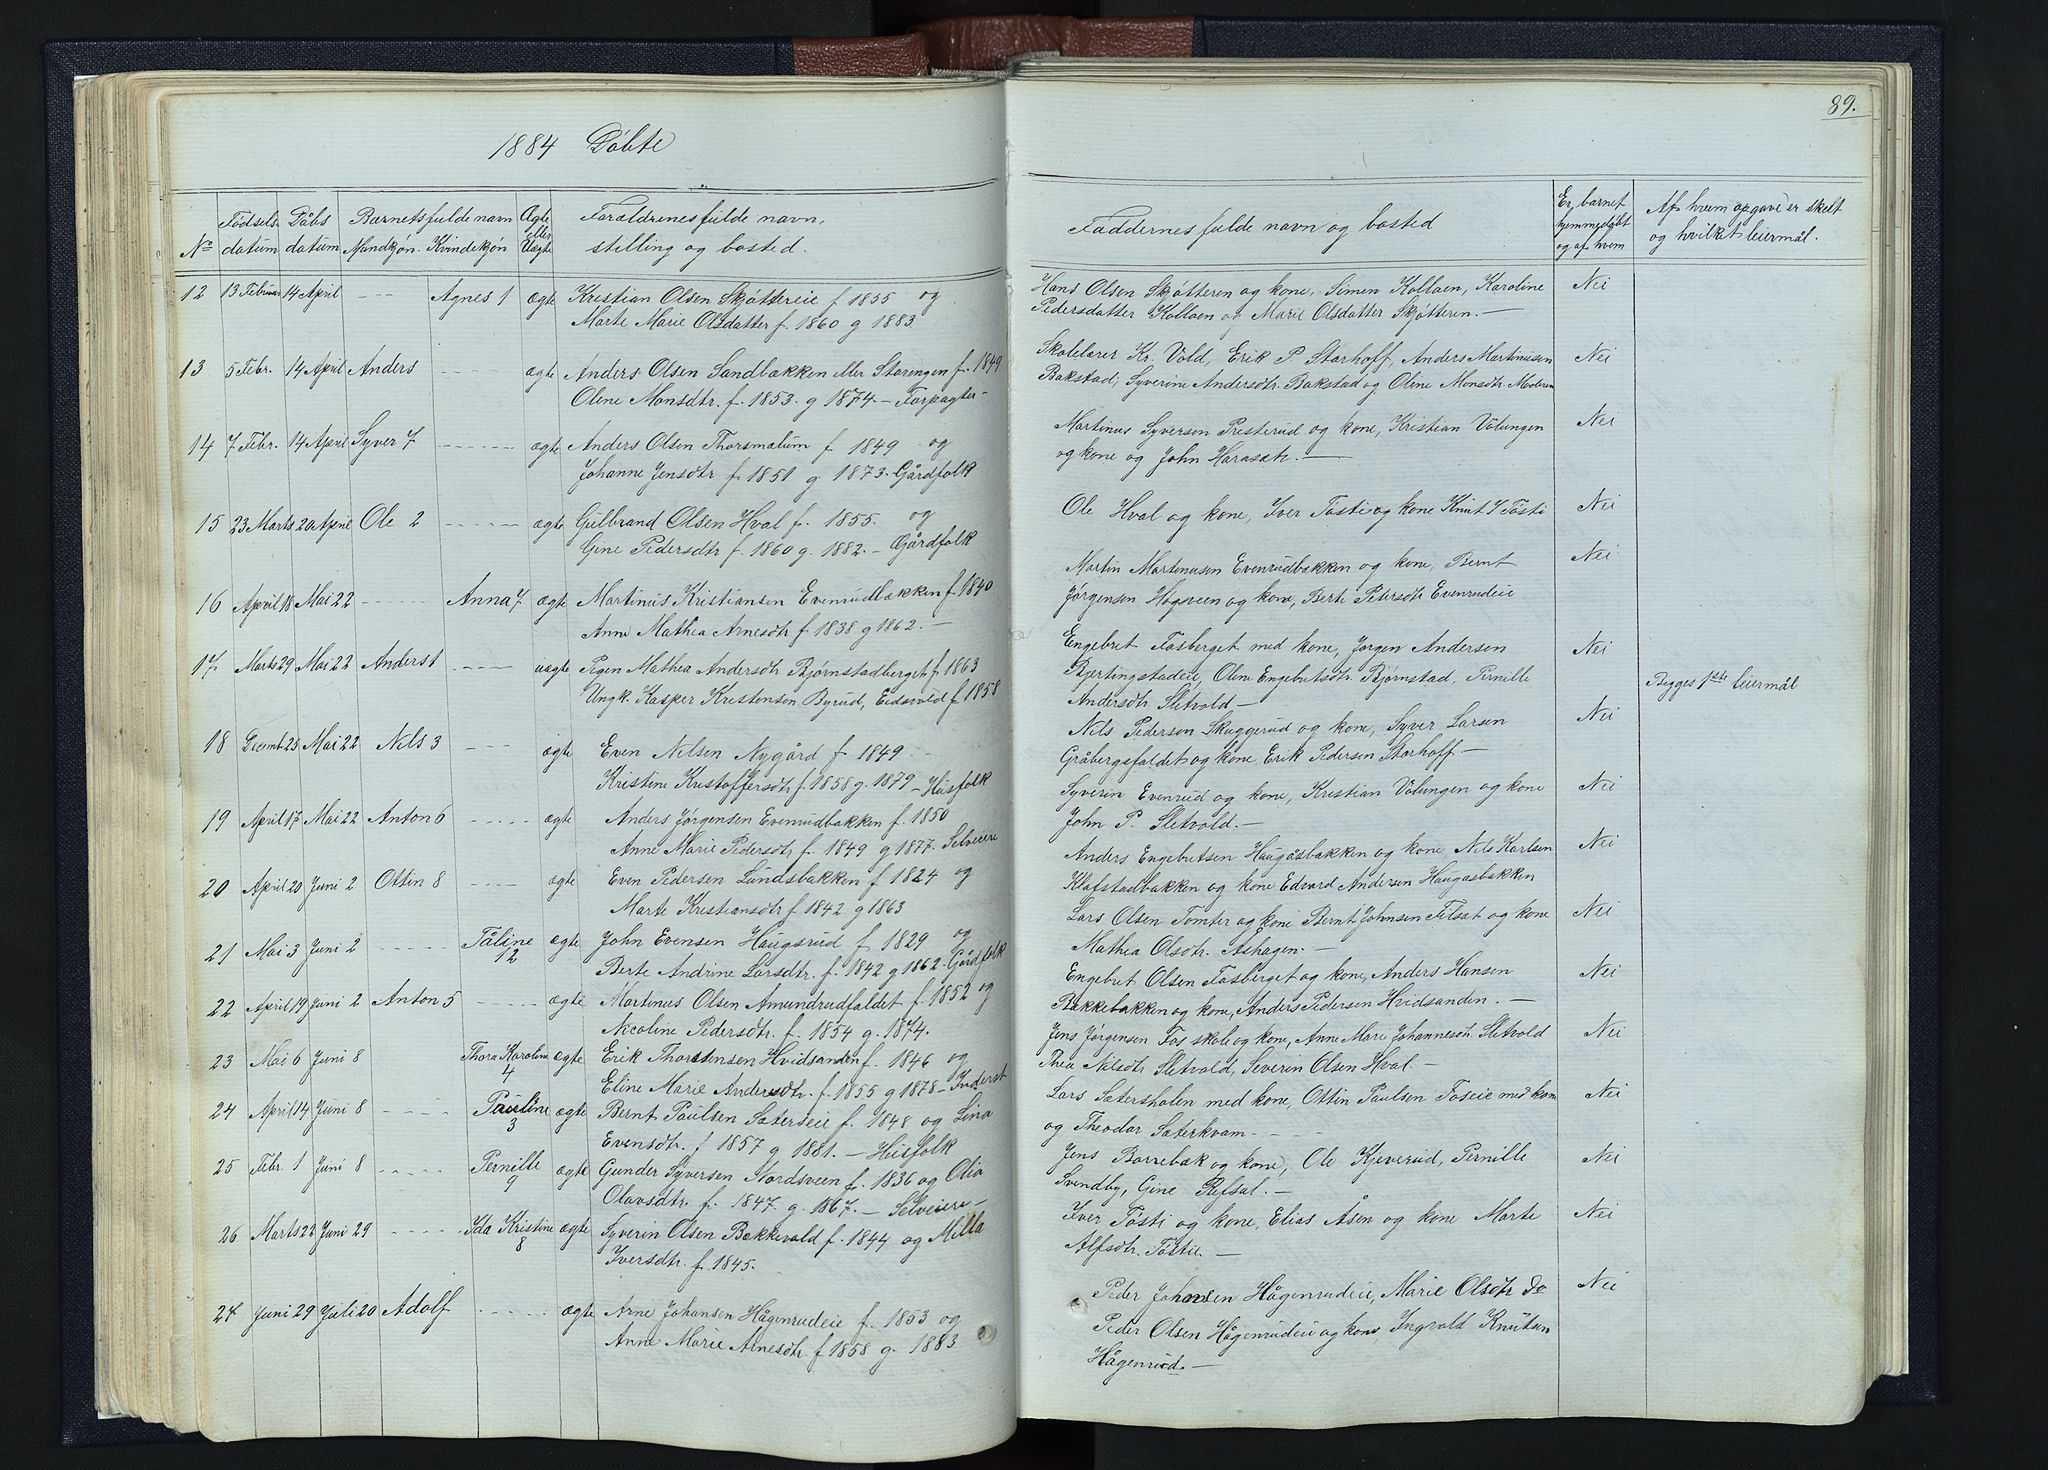 1884 Döbte
No
Fødsels datum
Dåbs datum
Barnets fulde navn
Mandkjøn. Kvindekjøn
Ægte eller Uægte
Forældrenes fulde navn,
stilling og bosted.
12 13 Februar 14 April - - - Agnes 1 ægte Kristian Olsen Skjøttereie f. 1855 og
Marte Marie Olsdatter f. 1860 g 1883.
13 5 Febr. 14 April Anders - - - ægte Anders Olsen Sandbækken eller Starengen f. 1849
Olene Monsdtr. f. 1853. g 1874. - Forpagter -
14 7 Febr. 14 April Syver 7 - - - ægte Anders Olsen Thorsmalum f. 1849 og
Johanne Jensdtr f. 1851 g 1873. Gårdfolk
15 23 Marts 20 April Ole 2 - - - ægte Gulbrand Olsen Hval f. 1855. og
Gine Pedersdtr f. 1860 g. 1882. - Gårdfolk
16 April 18 Mai 22 - - - Anna 7 ægte Martinus Kristiansen Evenrudbækken f. 1840
Anne Mathea Arnesdtr f 1838 g 1862. -
17 Marts 29 Mai 22 Anders 1 - - - uægte Pigen Mathea Andersdtr Bjørnstadberget f. 1863
Ungk. Kasper Kristensen Byrud, Eidsvold f. 1858
18 Decemb. 25 Mai 22 Nils 3 - - - ægte Even Nilsen Nygård f. 1849
Kristine Kristoffersdtr f. 1858 g. 1879 - Husfolk
19 April 17 Mai 22 Anton 6 - - - ægte Anders Jørgensen Evenrudbakken f. 1850
Anne Marie Pedersdtr f. 1849 g 1877. Selveiere
20 April 20 Juni 2 Ottin 8 - - - ægte Even Pedersen Lundsbakken f. 1824 og
Marte Kristiansdtr f. 1842 g 1863
21 Mai 3 Juni 2 - - - Tåline 12 ægte John Evensen Haugsrud f. 1829 og
Berte Andrine Larsdtr. f. 1842 g 1862. Gårdfolk
22 April 19 Juni 2 Anton 5 - - - ægte Martinus Olsen Amundrudfaldet f. 1852 og
Nicoline Pedersdtr. f. 1854 g. 1874.
23 Mai 6 Juni 8 Thora Karoline 4 ægte Erik Thorstensen Hvidsanden f. 1846 og
Eline Marie Andersdtr f. 1855 g 1878 - Inderst
24 April 14 Juni 8 - - - Pauline 3 ægte Bernt Paulsen Sætereie f. 1848 og Lina
Evensdtr. f. 1857 g 1881. - Husfolk
25 Febr. 1 Juni 8 - - - Pernille 9 ægte Gunder Syversen Nordsveen f. 1836 og Olia
Olavsdtr. f. 1847. g. 1867. - Selveiere -
26 Marts 22 Juni 29 - - - Ida Kristine 8 ægte Syverin Olsen Bækkevald f. 1844 og Milla
Iversdtr f. 1845.
27 Juni 29 Juli 20 Adolf - - - ægte Arne Johansen Hågenrudeie f. 1853 og
Anne Marie Arnesdtr. f 1858 g. 1883
89.
Faddernes fulde navn og bosted
Er barnet hjemmedøbt og af hvem
Af hvem opgave er skelt og hvilket leiermål.
Hans Olsen Skjøtteren og kone, Simen Kollaen, Karoline Nei
Pedersdatter Kollaen og Marie Olsdatter Skjøtteren. -
Skolelærer Kr. Vold, Erik P. Starhoff, Anders Martinusen Nei
Bakstad, Syverine Andersdtr. Bakstad og Oline Monsdtr Moderen
Martinus Syversen Presterud og kone, Kristian Volungen Nei
og kone og John Haraset. -
Ole Hval og kone, Iver Tøsti og kone Knut I Tøsti Nei
Martin Martinusen Evenrudbækken og kone, Bernt Nei
Jørgensen Høgsveen og kone, Berte Petersdtr Evenrudeie
Engebret Fosberget med kone, Jørgen Andersen Nei
Bjertingstadeie, Oline Engebretsdtr Bjørnstad, Pernille Begges 1ste leiermål
Andersdtr Sletvold -
Nils Pedersen Skuggerud og kone, Syver Larsen Nei
Gråbergsfaldet og kone, Erik Pedersen Starhoff. -
Syverin Evenrud og kone, Kristian Volungen og kone Nei
John P. Sletvold. -
Anders Engebretsen Haugåsbakken og kone Nils Karlsen Nei
Klafstadbakken og kone Edvard Andersen Haugasbakken
Lars Olsen Tomter og kone Bernt Johnsen Filset og kone Nei
Mathea Olsdtr. Ashagen. -
Engebret Olsen Fosberget og kone, Anders Hansen Nei
Bakkebakken og kone, Anders Pedersen Hvidsanden. -
Jens Jørgensen Fos skole og kone, Anne Marie Johannesdtr Sletvold Nei
Thea Nilsdtr Sletvold, Severin Olsen Hval. -
Lars Sætersholen med kone, Ottin Paulsen Foseie med kone Nei
og Theodor Sæterkvam. - - -
Jens Borrebæk og kone, Ole Kjeverud, Pernille Nei
Svendby, Gine Refsal. -
Iver Tøsti og kone, Elias Åsen og kone Marte Nei
Alfsdtr. Tøstie. -
Peder Johansen Hågenrudeie, Marie Olsdtr Do Nei
Peder Olsen Hågenrudeie og kone, Ingvald Knutsen
Hågenrud. -